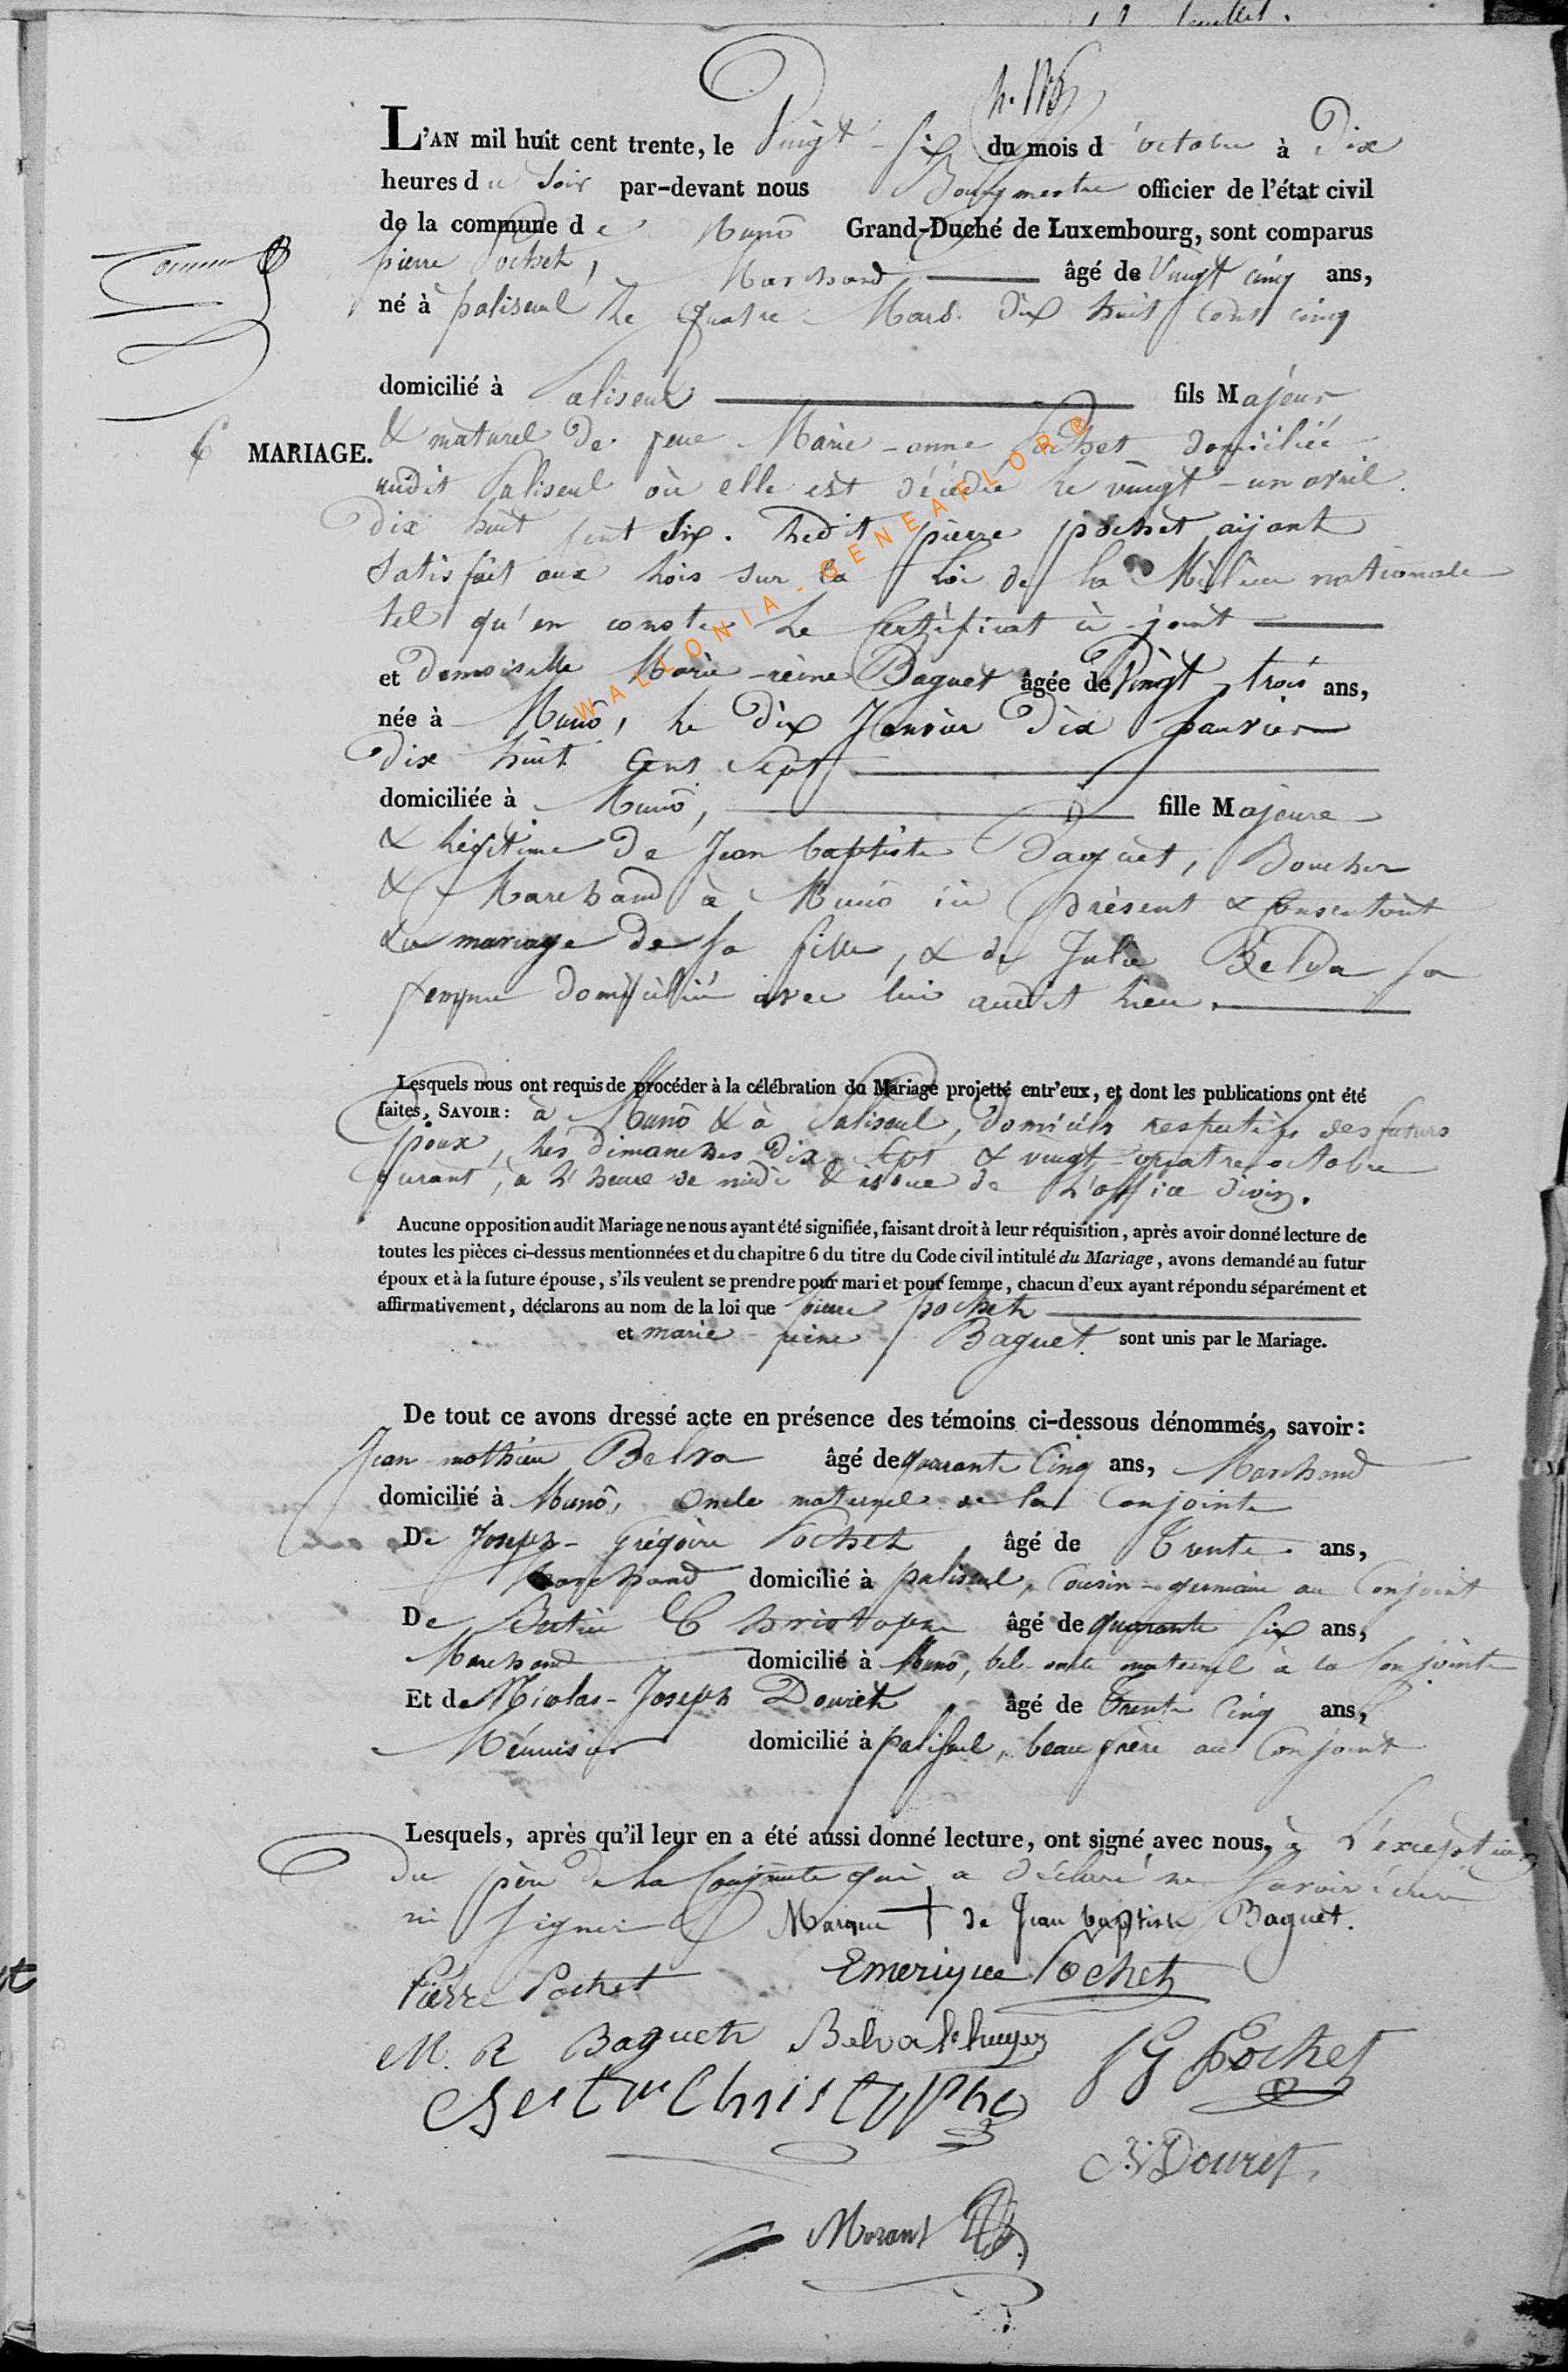 feuillet.
L'AN mil huit cent trente, le Vingt-six du mois d'octobre à Dix
heures du Soir par-devant nous Bourgmestre officier de l'état civil
de la commune de Munô Grand-Duché de Luxembourg, sont comparus
pierre pochet, Marchand âgé de Vingt cinq ans,
né à paliseul Le quatre Mars dix huit cent cinq
domicilié à Paliseul fils Majeur
6 MARIAGE.
& naturel De feue Marie-anne Pochet domiciliée
audit Paliseul où elle est décédée le vingt-un avril
Dix huit cent dix. Ledit pierre pochet aijant
Satisfait aux Lois sur la Loi de la Milice nationale
tel qu'en conste Le Certificat ci-joint
et Demoiselle Marie-reine Baguet âgée de Vingt-trois ans,
née à Munô, le dix Janvier Dix Janvier
Dix huit Cent Sept
domiciliée à Munô, fille Majeure
& Légitime De Jean baptiste Baguet, Boucher
& Marchand à Munô ici présent & Consentant
au mariage de sa fille, & de Julie Belva sa
femme domiciliée avec lui audit lieu.
Lesquels nous ont requis de procéder à la célébration du Mariage projetté entr'eux, et dont les publications ont été
faites, SAVOIR: à Munô & à Paliseul, domicils respectifs des futurs
époux, Les Dimanches Dix-Sept & vingt-quatre octobre
Courant, à L'heure de midi & issue de L'office divin.
Aucune opposition audit Mariage ne nous ayant été signifiée, faisant droit à leur réquisition, après avoir donné lecture de
toutes les pièces ci-dessus mentionnées et du chapitre 6 du titre du Code civil intitulé du Mariage, avons demandé au futur
époux et à la future épouse, s'ils veulent se prendre pour mari et pour femme, chacun d'eux ayant répondu séparément et
affirmativement, déclarons au nom de la loi que pierre pochet
et marie-reine Baguet sont unis par le Mariage.
De tout ce avons dressé acte en présence des témoins ci-dessous dénommés, savoir:
Jean-mathieu Belva âgé de quarante Cinq ans, Marchand
domicilié à Munô, Oncle maternel de la Conjointe
De Joseph-Grégoire Pochet âgé de Trente ans,
Marchand domicilié à paliseul, Cousin-germain au Conjoint
De Bertin Christophe âgé de quarante six ans,
Marchand domicilié à Munô, bel oncle maternel à la Conjointe
Et de Nicolas-Joseph Douret âgé de Trente Cinq ans,
Ménuisier domicilié à paliseul, beau frère au Conjoint
Lesquels, après qu'il leur en a été aussi donné lecture, ont signé avec nous, à L'exception
du père de la Conjointe qui a Déclaré ne Savoir écrire
ni signer Marque + de Jean baptiste Baguet.
Pierre Pochet Emerique Pochet
M. R Baguet Belva
JG Pochet
Bertin Christophe
NJ Douret
Morant
WALLONIA-GENEAFLOR®